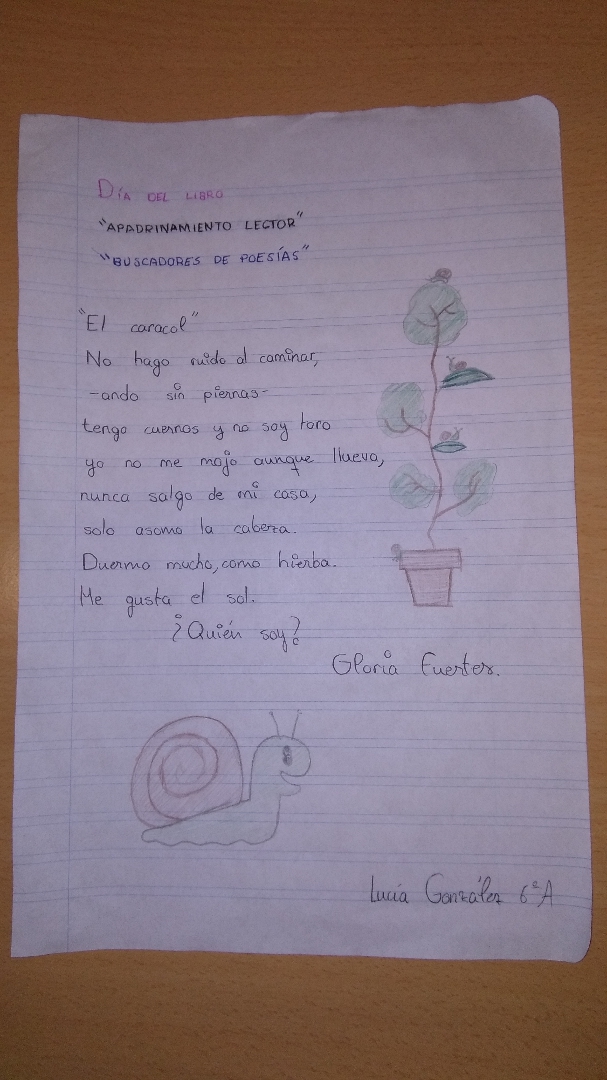 DÍA DEL LIBRO
"APADRINAMIENTO LECTOR"
"BUSCADORES DE POESÍAS"
"El caracol"
No hago ruido al caminar,
-ando sin piernas-
tengo cuernos y no soy toro
yo no me mojo aunque llueva,
nunca salgo de mi casa,
solo asomo la cabeza.
Duermo mucho, como hierba.
Me gusta el sol.
¿Quién soy?
Gloria Fuertes.
Lucía González 6ºA